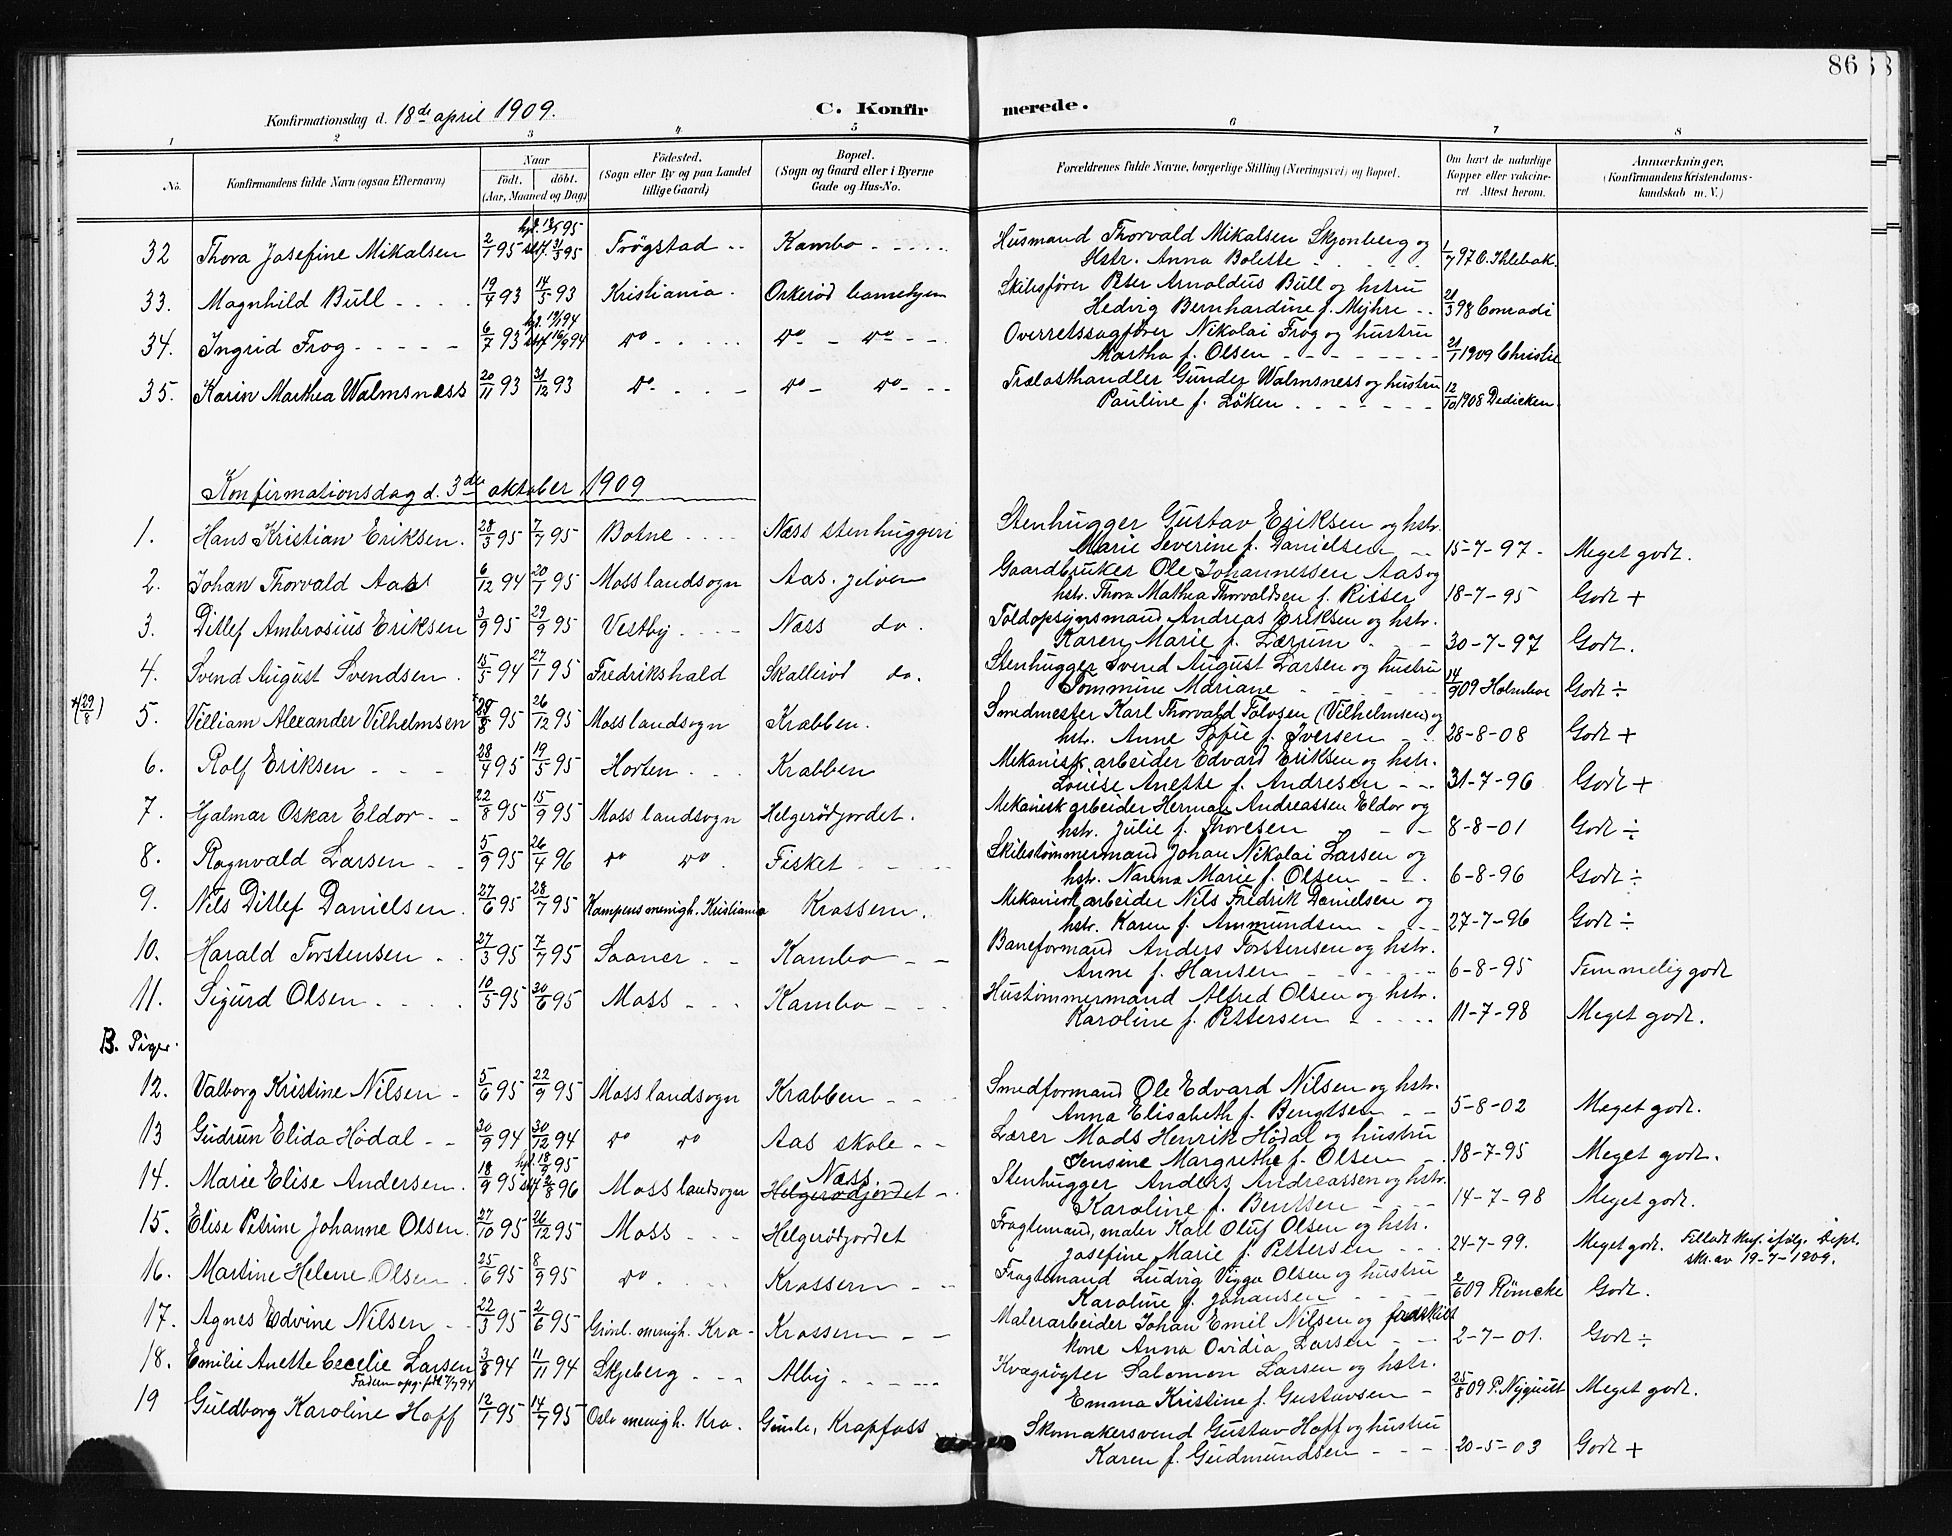 86
Konfirmationsdag d. 18de april 1909.
C. Konfirmerede.
1 2 3 4 5 6 7 8
No. Konfirmandens fulde Navn (ogsaa Efternavn) Naar Født. døbt. (Aar, Maaned og Dag) Födested. (Sogn eller By og paa Landet tillige Gaard) Bopæl. (Sogn og Gaard eller i Byerne Gade og Hus-No. Forældrenes fulde Navne, borgerlige Stilling (Næringsvei) og Bopæl. Om havt de naturlige Kopper eller vakcineret Attest herom. Anmærkninger. (Konfirmandens Kristendomskundskab m. V.)
32 Thora Josefine Mikalsen 2/1 95 hjd. 12/5 95 stf. 31/3 95 Trøgstad Kambo Husmand Thorvald Mikalsen Skjonberg og
Hstr. Anna Bolette 1/7 97 O. Ihlebæk.
33. Magnhild Bull 19/4 93 14/5 93 Kristiania Orkerød hamebyen Skibsfører Peter Arnoldus Bull og hstru
Hedvig Bernhardine f. Mijhre 21/3 98 Conradi
34. Ingrid Frog 6/7 93 do do do Overretssagfører Nikolai Frog og hustru
Martha f. Olsen 21/1 1909 Christie
35. Karin Marthea Walmsness 20/11 93 31/12 93 do do do Trælasthandler Gunder Walmsness og hustru
Pauline f. Løken 12/10 1908 Dedicken
Konfirmationsdag d. 3die oktober 1909
1. Hans Kristian Eriksen. 28/3 95 7/7 95 Botne Næss stenhuggeri Stenhugger Gustav Eriksen og hstr.
Marie Severine f. Danielsen 15-7-97 Meget godt.
2. Johan Thorvald Aas 6/12 94 20/1 95 Moss landsogn Aas. jeløen Gaardbruker Ole Johannessen Aas og
hstr. Thora Mathea Thorvaldsen f. Risser 18-7-95 Godt +
3. Ditlef Ambrosius Eriksen 3/9 95 29/9 95 Vestby Næss do. Toldopsynsmand Andreas Eriksen og hstr.
Karen Marie f. Lærum 30-7-97 Godt.
4. Svend August Svendsen 15/5 94 27/1 95 Fredrikshald Skallerød do. Stenhugger Svend August Larsen og hustru
Tommine Mariane 14/9 09 Holmboe Godt ÷
*(29/8) 5. Villiam Alexander Vilhelmsen 8 95 26/12 95 Moss landsogn Krabben. Smedmester Karl Thorvald Tolvsen (Vilhelmsen) og
hstr. Anne Sofie f. Iversen 28-8-08 Godt +
6. Rolf Eriksen 28/4 95 19/5 95 Horten Krabben Mekanisk arbeider Edvard Eriksen og hstr.
Louise Anette f. Andresen 31-7-96 Godt +
7. Hjalmar Oskar Eldor 22/8 95 15/9 95 Moss landsogn Helgerødjordet. Mekanisk arbeider Herman Andreassen Eldor og
hstr. Julie f. Thoresen 8-8-01 Godt ÷
8. Ragnvald Larsen 5/9 95 26/4 96 do do Fisket Skibstømmermand Johan Nikolai Larsen og
hstr. Nanna Marie f. Olsen 6-8-96 Godt ÷
9. Nils Ditlef Danielsen 27/6 95 28/7 95 Kampens menigh. Kristiania Krossern. Mekanisk arbeider Nils Fredrik Danielsen og
hstr. Karen f. Ammundsen 27-7-96 Godt ÷
10. Harald Torstensen 27/3 95 7/7 95 Saaner Kambo Baneformand Anders Torstensen og hstr.
Anne f. Hansen 6-8-95 Temmelig godt
11. Sigurd Olsen 10/5 95 30/6 95 Moss Kambo Hustømmermand Alfred Olsen og hstr.
Karoline f. Pettersen 11-7-98 Meget godt.
B. Piger.
12. Valborg Kristine Nilsen 5/6 95 22/9 95 Moss landsogn Krabben Smedformand Ole Edvard Nilsen og hstr.
Anna Elisabeth f. Bengtsen 5-8-02 Meget godt.
13 Gudrun Elida Hödal 30/9 94 30/12 94 do do Aas skole Lærer Mads Henrik Hödal og hustru
Jensine Margrethe f. Olsen 18-7-95 Meget godt.
14. Marie Elise Andersen 18/9 95 hjd. 18/9 95 stf. 2/8 96 Moss landsogn Næss Helgerødjordet Stenhugger Anders Andreassen og hstr.
Karoline f. Bentsen 14-7-98 Meget godt.
15. Elise Petrine Johanne Olsen 27/10 95 26/12 95 Moss Helgerødjordet Fragtemand, maler Karl Oluf Olsen og hstr.
Josefine Marie f. Pettersen 24-7-99. Meget godt. Tilladt konf. ifølge Dept. skr. av 19-7-1909.
16. Martine Helene Olsen 25/6 95 8/9 95 do Krossern Fragtemand Ludvig Viggo Olsen og hustru
Karoline f. Johansen 2/6 09 Römcke Godt.
17. Agnes Edvine Nilsen 22/3 95 2/6 95 Grönl. menigh. Kra. Krossern Malerarbeider Johan Emil Nilsen og fraskilt
kone Anna Ovidia Larsen 2-7-01. Godt ÷
18. Emilie Anette Cecelie Larsen 3/8 94 11/11 94 Skjeberg Alby Kvægrøgter Salomon Larsen og hstr.
Faderen opg. født 7/7 94
Emma Kristine f. Gustavsen 25/8 09 P. Nyquist Meget godt.
19 Guldborg Karoline Hoff 12/1 95 14/7 95 Oslo menigh. Kra. Gimle, Krapfoss Skomakersvend Gustav Hoff og hustru
Karen f. Gudmundsen 20-5-03 Godt +